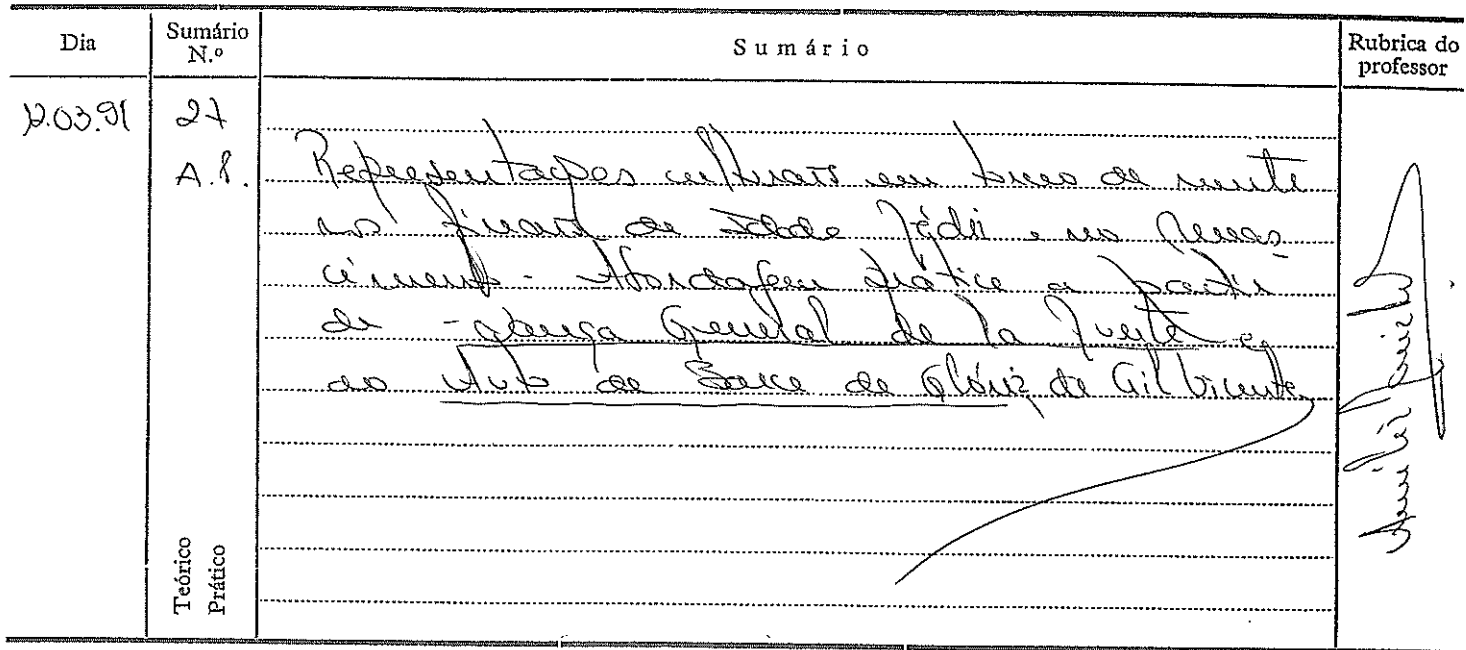 Dia
Sumário N.º
Sumário
Rubrica do professor
12.03.91
27
A.P.
Representações culturais em torno da morte
nos finais da Idade Média e no Renas-
cimento - Abordagem prática a partir
da - Dança General de la Muerte e
do Auto da Barca da Glória de Gil Vicente
Teórico
Prático